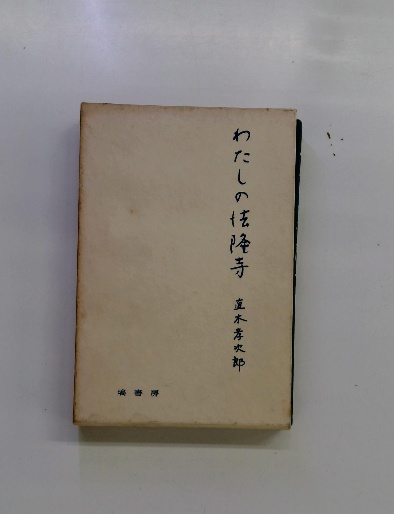 わたしの法隆寺
直木孝次郎
塙書房